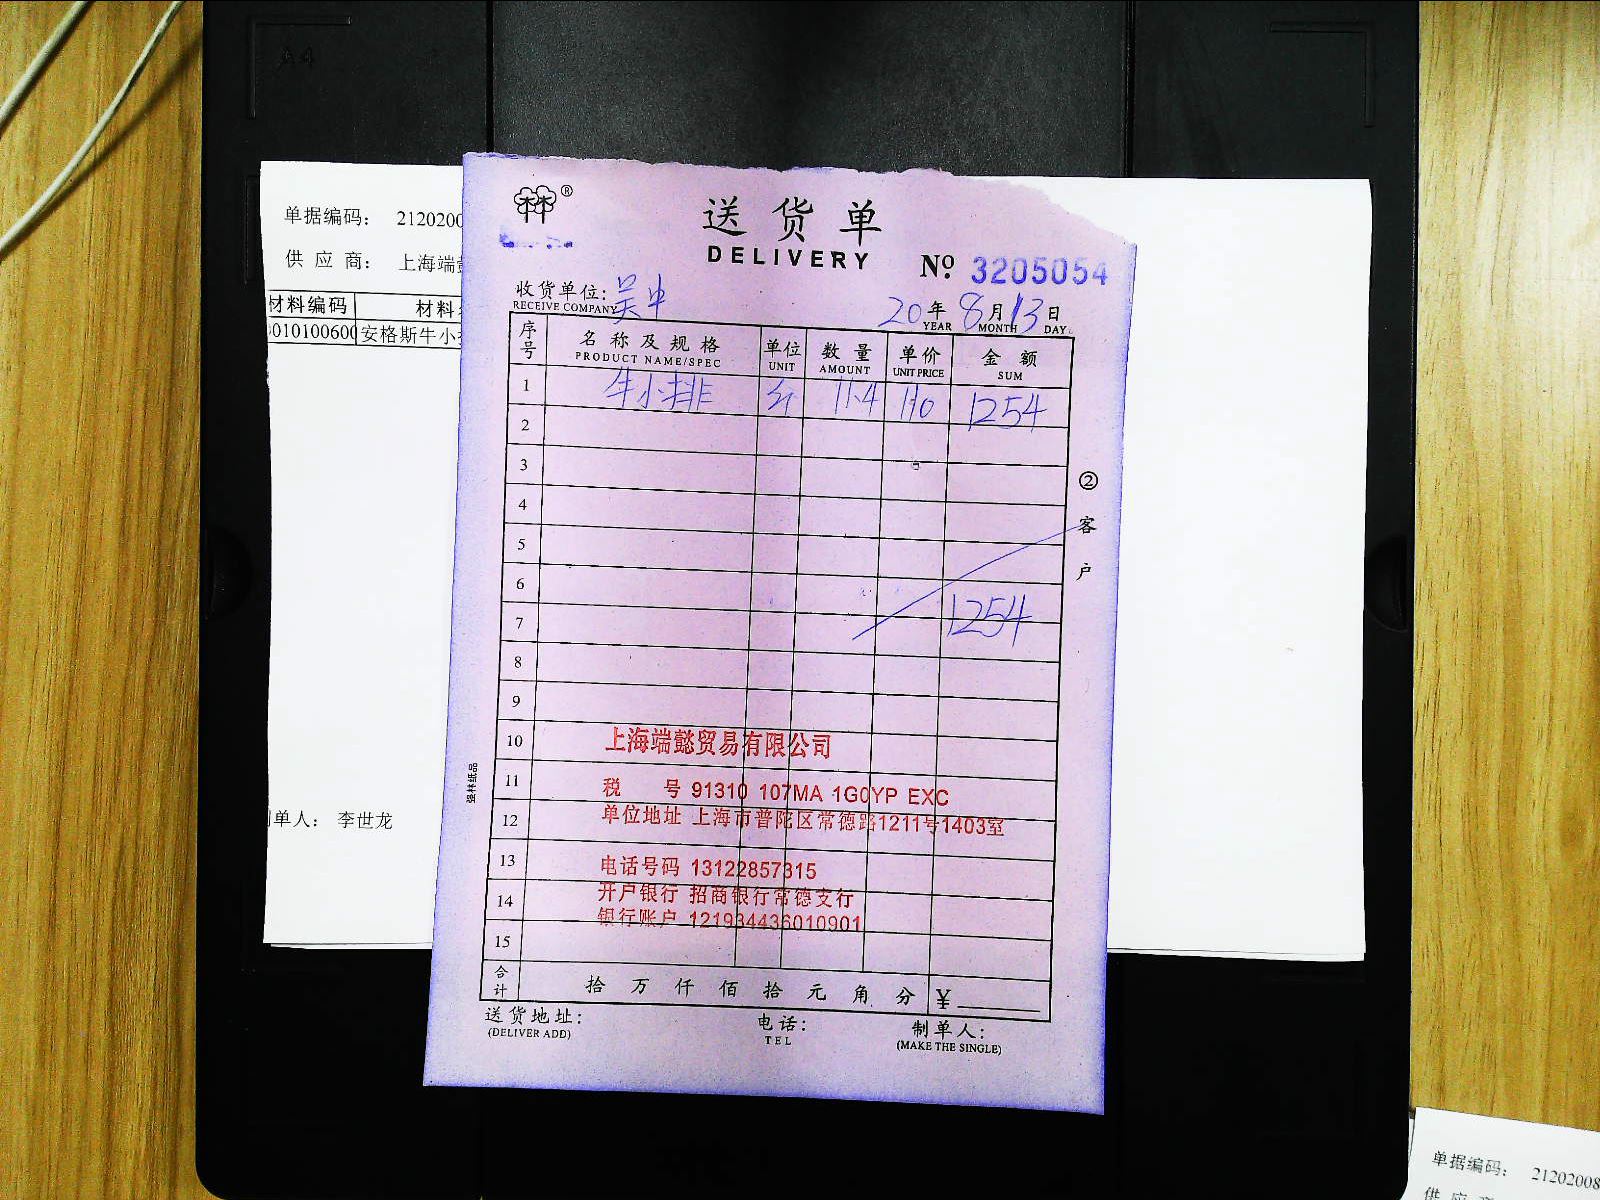 A4
单据编码： 2120200
供 应 商： 上海端懿
材料编码 材料
010100600 安格斯牛小
制单人： 李世龙
送货单
DELIVERY
№ 3205054
收货单位：吴中
RECEIVE COMPANY
20年8月13日
YEAR MONTH DAY
序号 名称及规格 单位 数量 单价 金额
PRODUCT NAME/SPEC UNIT AMOUNT UNIT PRICE SUM
1 牛小排 斤 11.4 110 1254
2
3
4
5
6
7 1254
8
9
10
11
12
13
14
15
②客户
上海端懿贸易有限公司
税 号 91310 107MA 1G0YP EXC
单位地址 上海市普陀区常德路1211号1403室
电话号码 13122857315
开户银行 招商银行常德支行
银行账户 121934436010901
强林纸品
合计 拾 万 仟 佰 拾 元 角 分 ¥
送货地址： 电话： 制单人：
(DELIVER ADD) TEL (MAKE THE SINGLE)
单据编码： 21202008
供 应 商